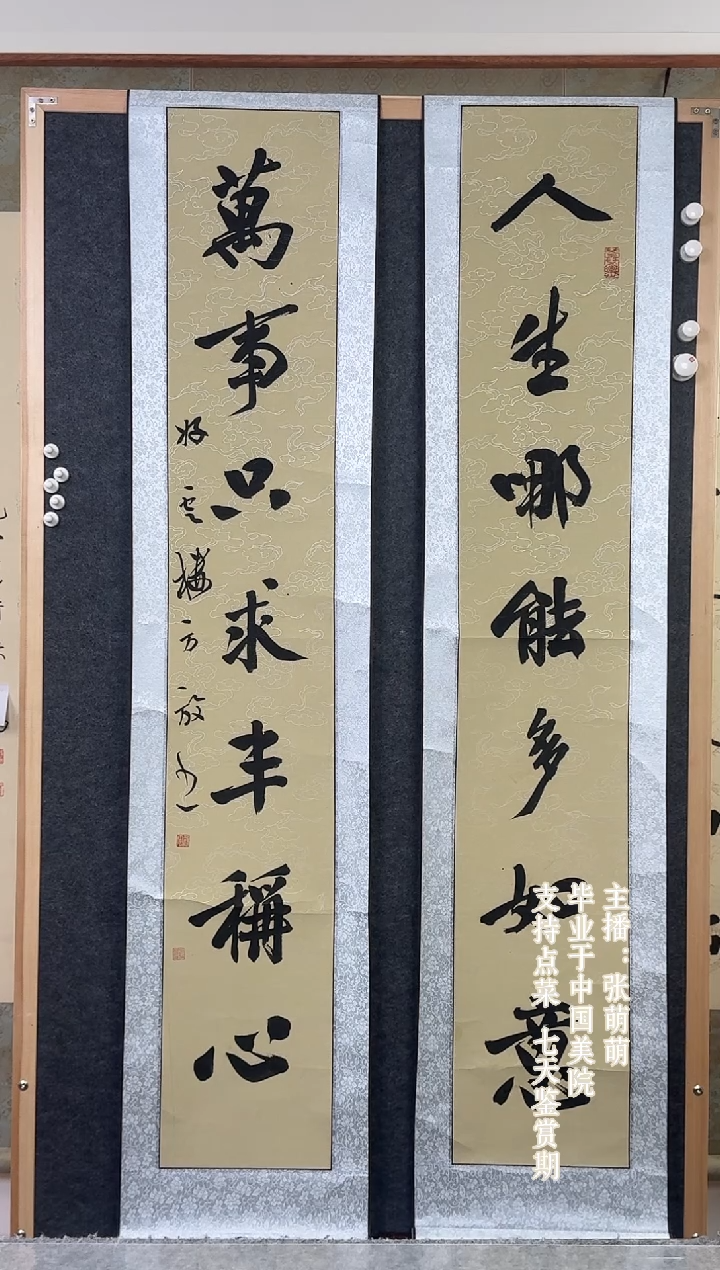 人生哪能多如意
萬事只求半稱心
好雲樓方放書
主播：张萌萌
毕业于中国美院
支持点菜 七天鉴赏期